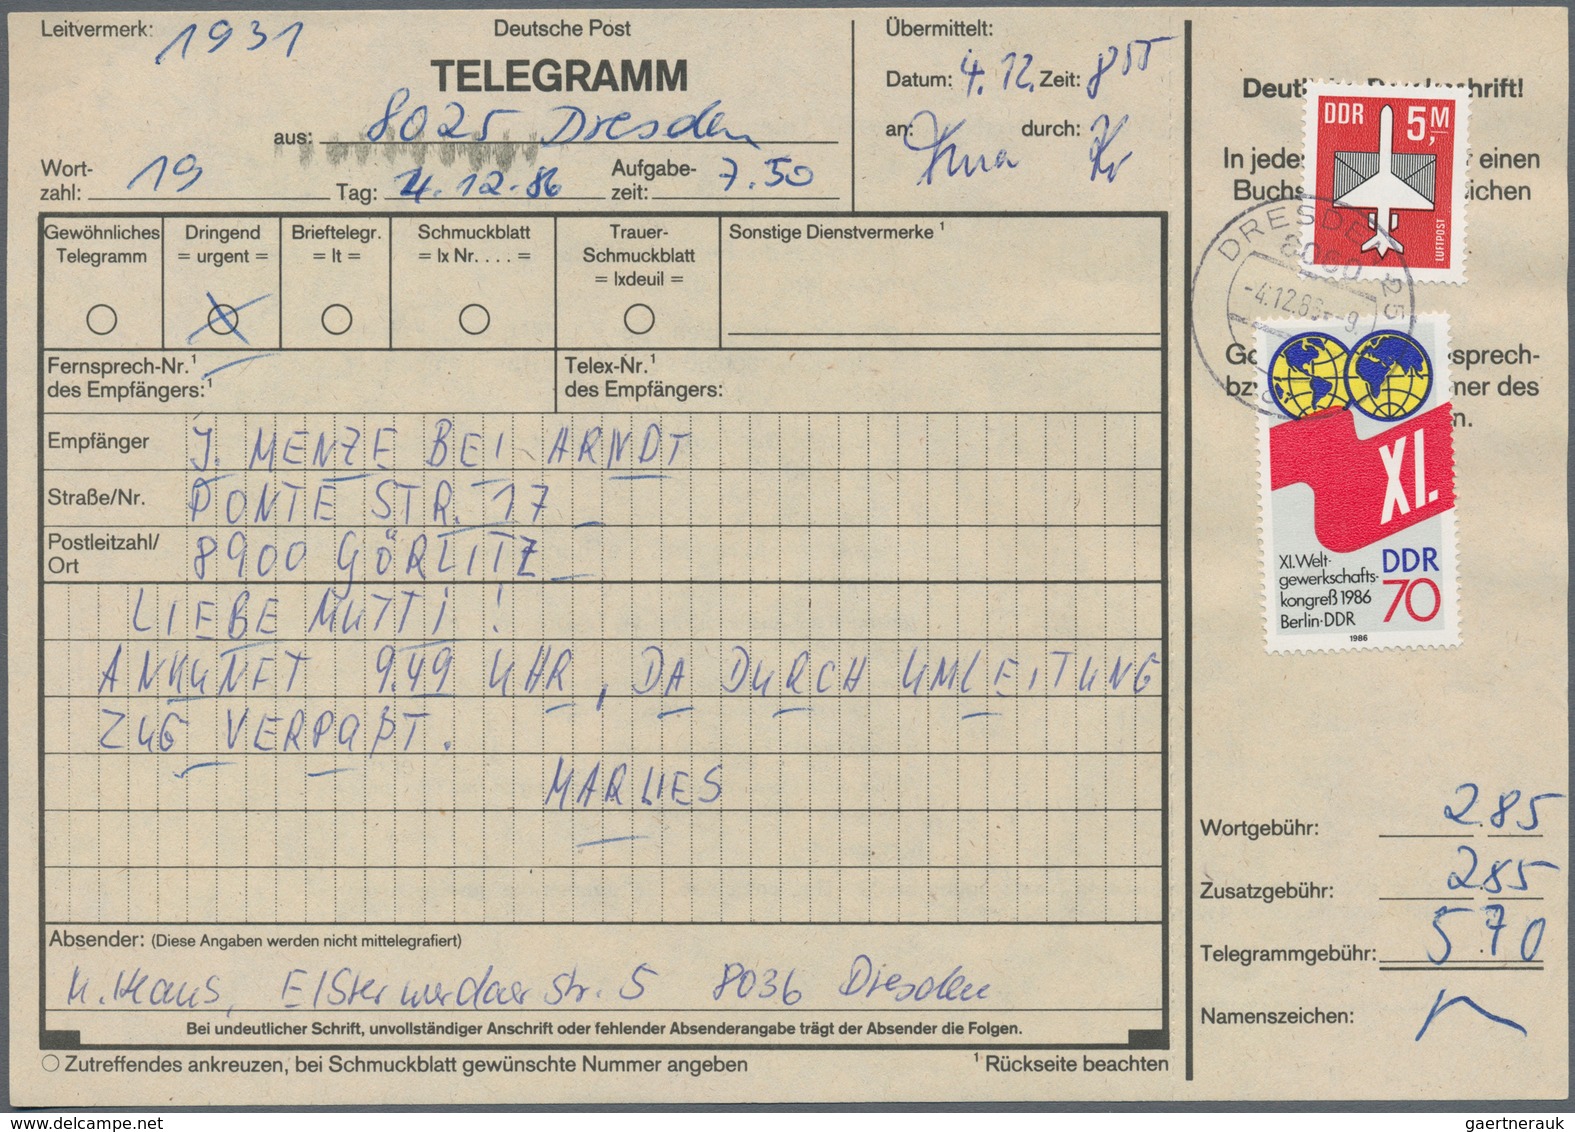 Leitvermerk: 1931
Deutsche Post
TELEGRAMM
aus: 8025 Dresden
Wort-
zahl: 19
Tag: 4.12.86
Aufgabe-
zeit: 7.50
Übermittelt:
Datum: 4.12. Zeit: 8 55
an: durch:
Gewöhnliches
Telegramm
Dringend
= urgent =
Brieftelegr.
= lt =
Schmuckblatt
= lx Nr. . . . =
Trauer-
Schmuckblatt
= lxdeuil =
Sonstige Dienstvermerke 1
Fernsprech-Nr.1
des Empfängers:1
Telex-Nr.1
des Empfängers:
Empfänger J. MENZE BEI ARNDT
Straße/Nr. PONTE STR. 17
Postleitzahl/
Ort 8900 GÖRLITZ
LIEBE MUTTI !
ANKUNFT 9.49 UHR, DA DURCH UMLEITUNG
ZUG VERPAßT.
MARLIES
Absender: (Diese Angaben werden nicht mittelegrafiert)
Str. 5 8036 Dresden
Bei undeutlicher Schrift, unvollständiger Anschrift oder fehlender Absenderangabe trägt der Absender die Folgen.
Zutreffendes ankreuzen, bei Schmuckblatt gewünschte Nummer angeben
1 Rückseite beachten
In jede einen
Buchs zeichen
DDR 5,M
LUFTPOST
DRESDEN 25
8060
-4.12.86--9
sprech-
mer des
XI.
XI. Welt-
gewerkschafts-
kongreß 1986
Berlin·DDR
DDR
70
1986
Wortgebühr: 2.85
Zusatzgebühr: 2.85
Telegrammgebühr: 5.70
Namenszeichen:
gaertnerauk